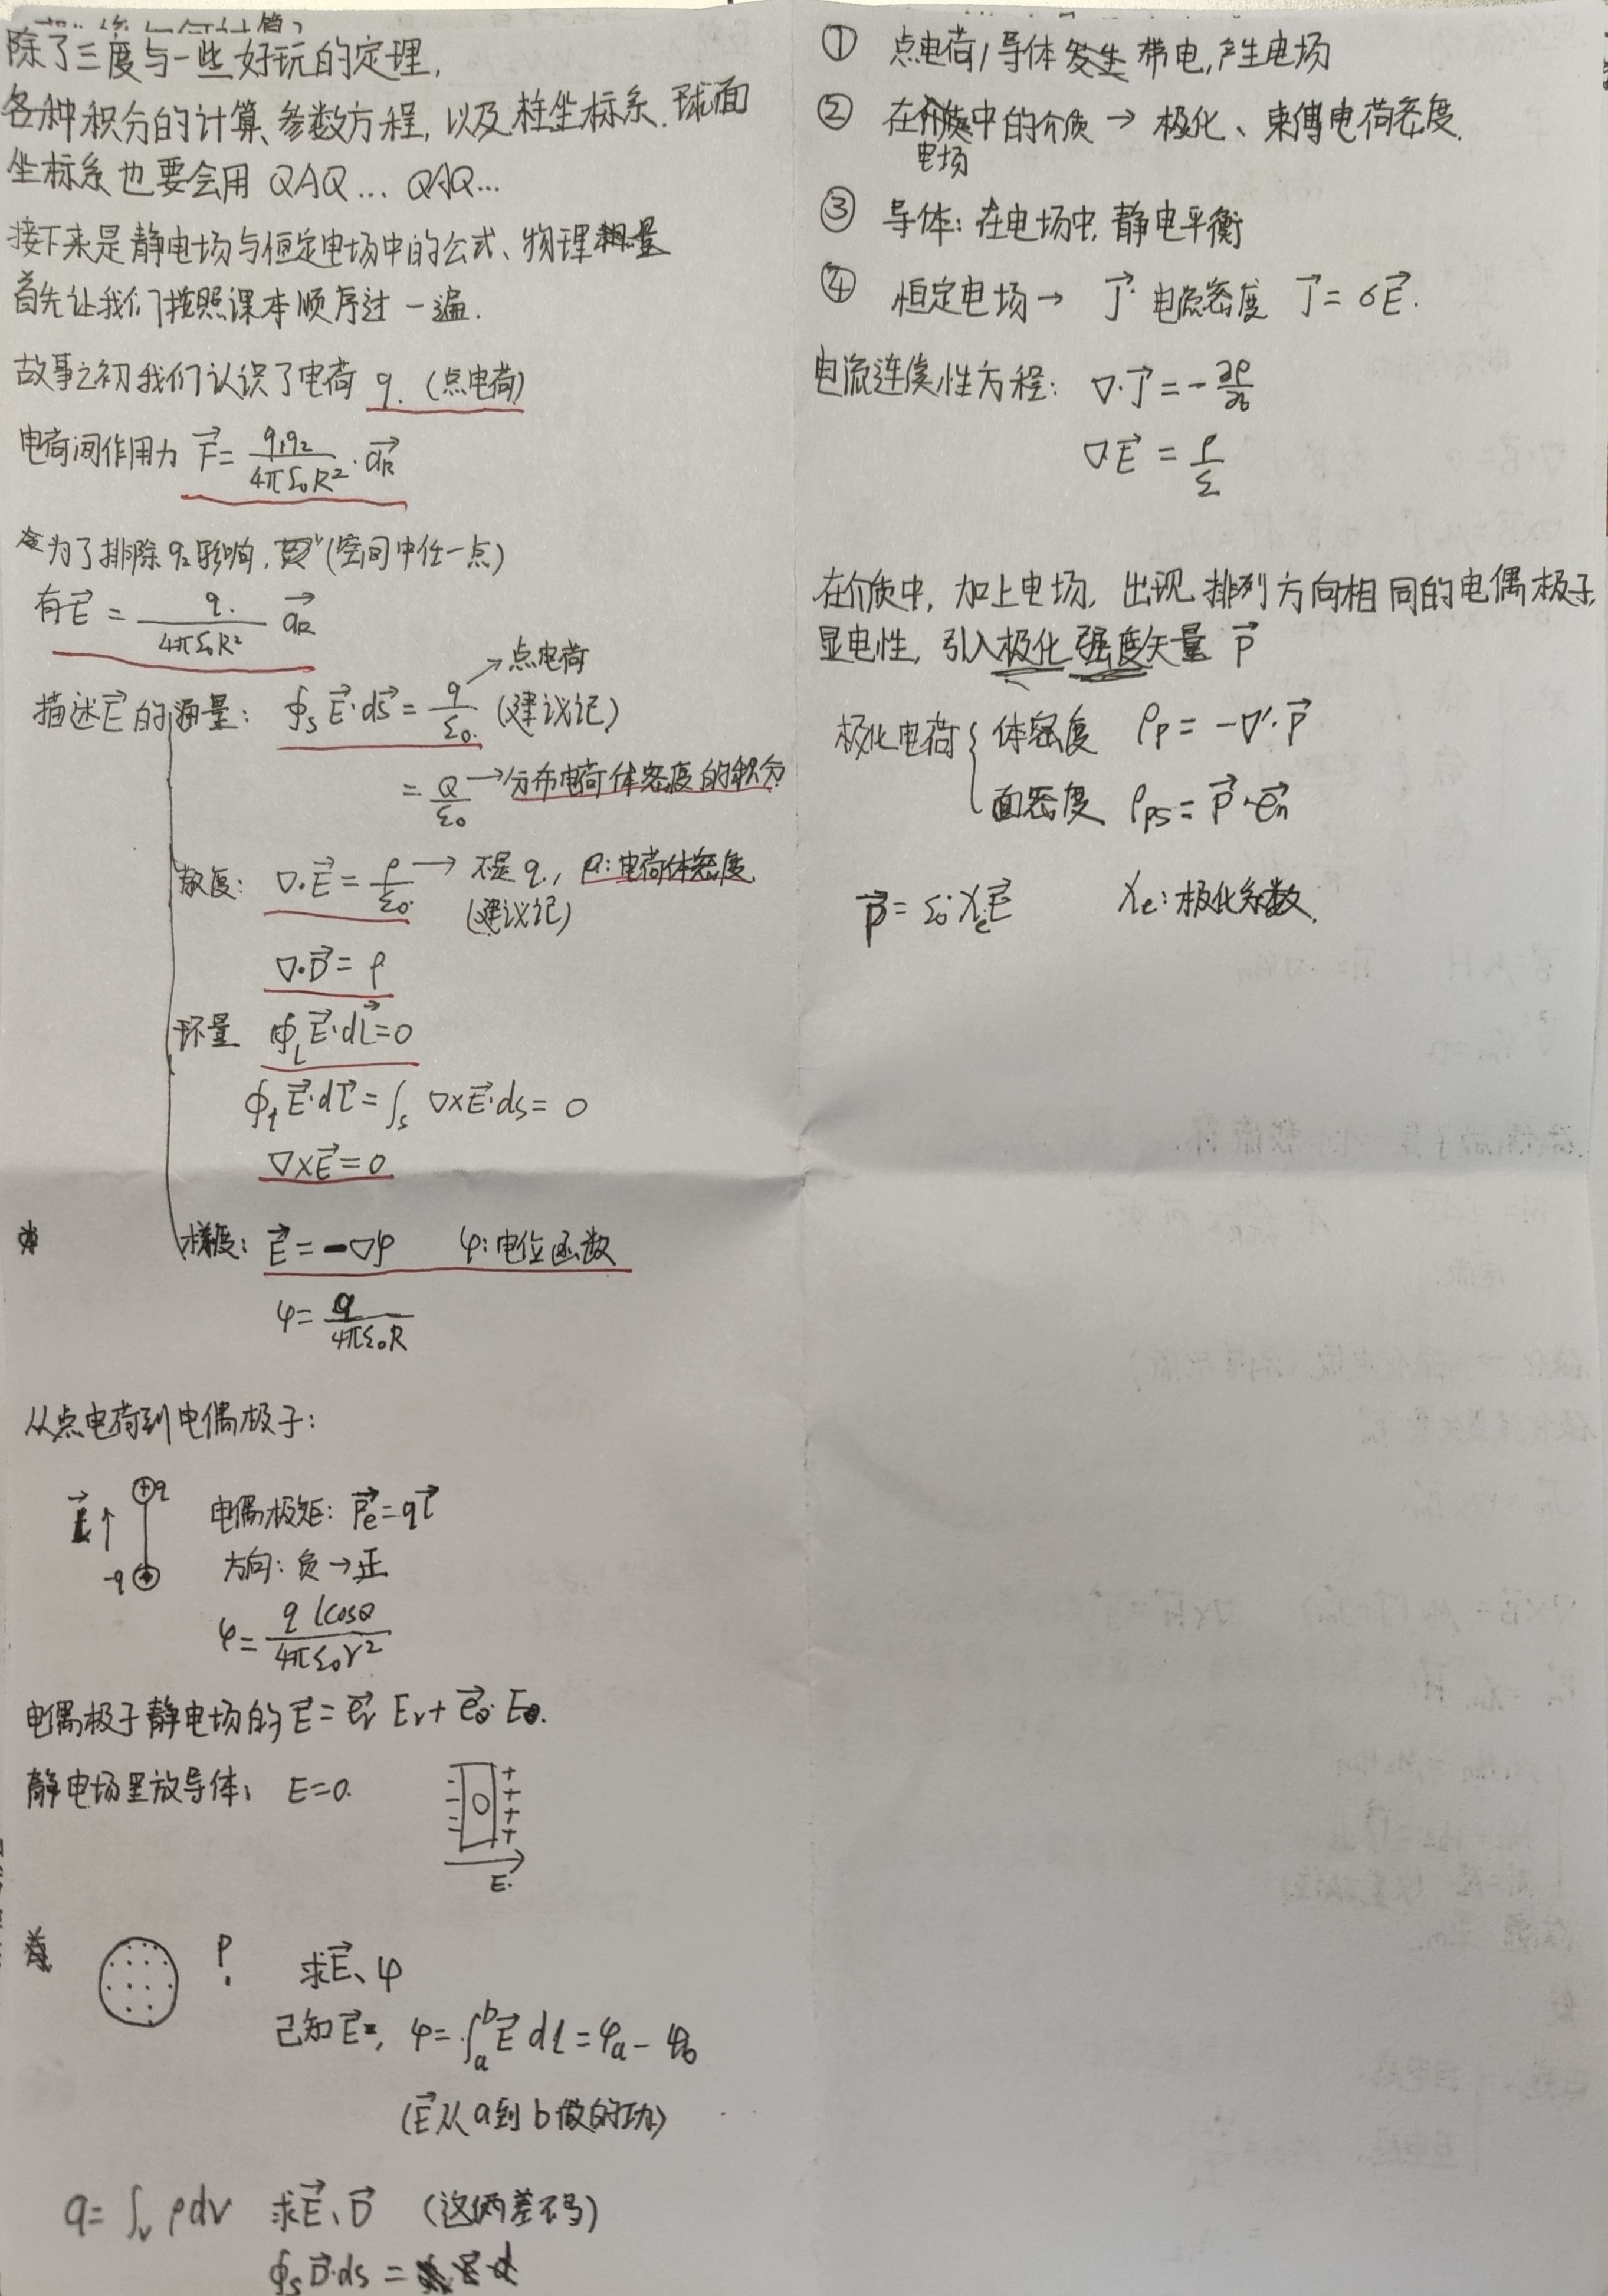 除了三度与一些好玩的定理,
各种积分的计算、参数方程, 以及柱坐标系. 球面
坐标系也要会用 QAQ... QAQ...
接下来是静电场与恒定电场中的公式、物理量
首先让我们按照课本顺序过一遍.
故事之初我们认识了电荷 q. (点电荷)
电荷间作用力 F⃗ = q₁q₂/(4πε₀R²) · a⃗R
为了排除q₂影响, (空间中任一点)
有E⃗ = q/(4πε₀R²) a⃗R
描述E⃗的通量: ∮s E⃗·dS⃗ = q/ε₀ → 点电荷 (建议记)
= Q/ε₀ → 分布电荷体密度的积分
散度: ∇·E⃗ = ρ/ε₀ → 不是q., ρ: 电荷体密度
(建议记)
∇·D⃗ = ρ
环量 ∮L E⃗·dL⃗=0
∮l E⃗·dl⃗ = ∫s ∇×E⃗·ds = 0
∇×E⃗=0
梯度: E⃗ = -∇φ φ: 电位函数
φ = q/(4πε₀R)
从点电荷到电偶极子:
+q
-q
电偶极矩: P⃗e = ql⃗
方向: 负→正
φ = q l cosθ/(4πε₀r²)
电偶极子静电场的E⃗ = e⃗r Er + e⃗θ· Eθ.
静电场里放导体, E=0.
- 0 +
E.
P
求E⃗、φ
已知E⃗, φ = ∫ₐᵇ E⃗ dl = φa - φb
(E⃗从a到b做的功)
q = ∫v ρdv 求E⃗、D⃗ (这俩差不多)
∮s D⃗·ds =
① 点电荷/导体 带电, 产生电场
② 在电场中的介质 → 极化、束缚电荷密度.
③ 导体: 在电场中, 静电平衡
④ 恒定电场→ J⃗ 电流密度 J⃗ = σE⃗.
电流连续性方程: ∇·J⃗ = -∂ρ/∂t
∇E⃗ = ρ/ε
在介质中, 加上电场, 出现排列方向相同的电偶极子,
显电性, 引入极化强度矢量 P⃗
极化电荷{ 体密度 ρP = -∇'·P⃗
面密度 ρPS = P⃗·e⃗n
P⃗ = ε₀χeE⃗ χe: 极化系数.